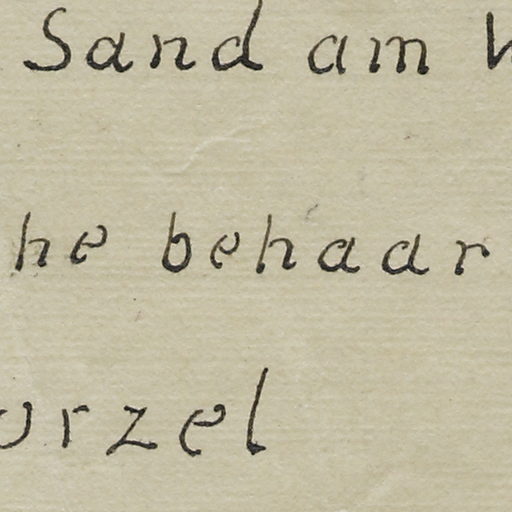 Sand am
he behaar
urzel